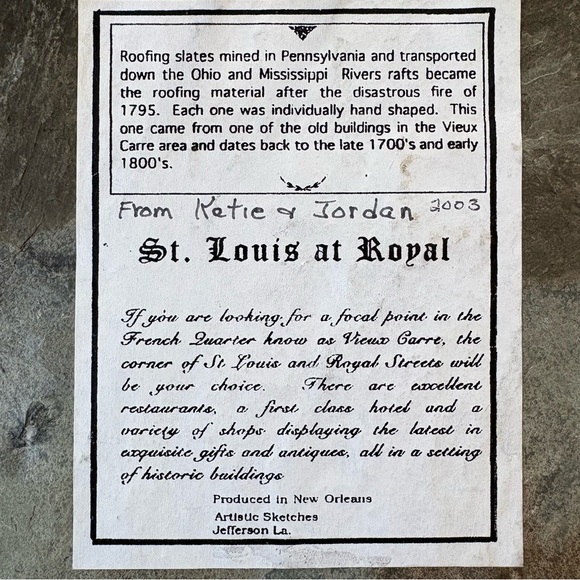 Roofing slates mined in Pennsylvania and transported
down the Ohio and Mississippi Rivers rafts became
the roofing material after the disastrous fire of
1795. Each one was individually hand shaped. This
one came from one of the old buildings in the Vieux
Carre area and dates back to the late 1700's and early
1800's.
From Katie & Jordan 2003
St. Louis at Royal
If you are looking for a focal point in the
French Quarter know as Vieux Carre, the
corner of St Louis and Royal Streets will
be your choice. There are excellent
restaurants, a first class hotel and a
variety of shops displaying the latest in
exquisite gifts and antiques, all in a setting
of historic buildings
Produced in New Orleans
Artistic Sketches
Jefferson La.